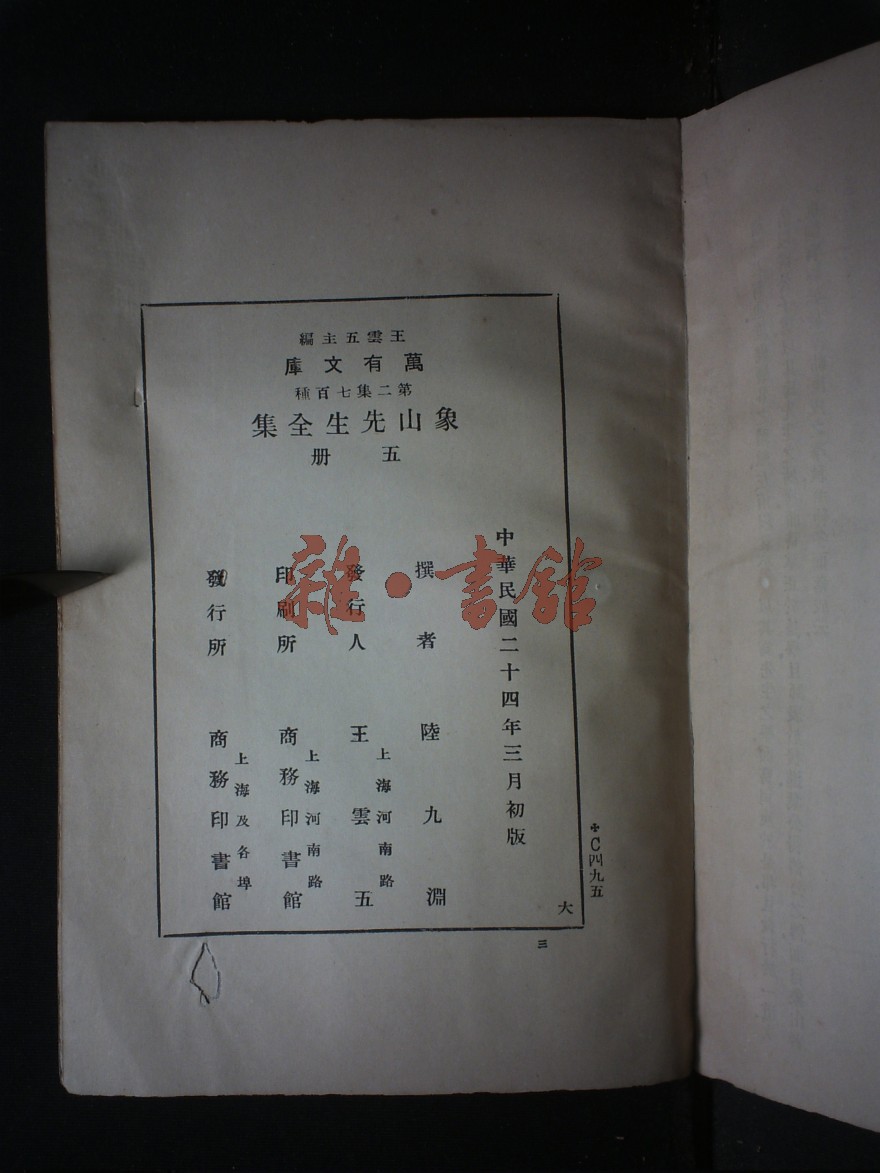 王雲五主編
萬有文庫
第二集七百種
象山先生全集
五册
中華民國二十四年三月初版
撰者 陸九淵
發行人 王雲五
上海河南路
印刷所 商務印書館
上海河南路
發行所 商務印書館
上海及各埠
＊C四九五
大
三
雜·書館